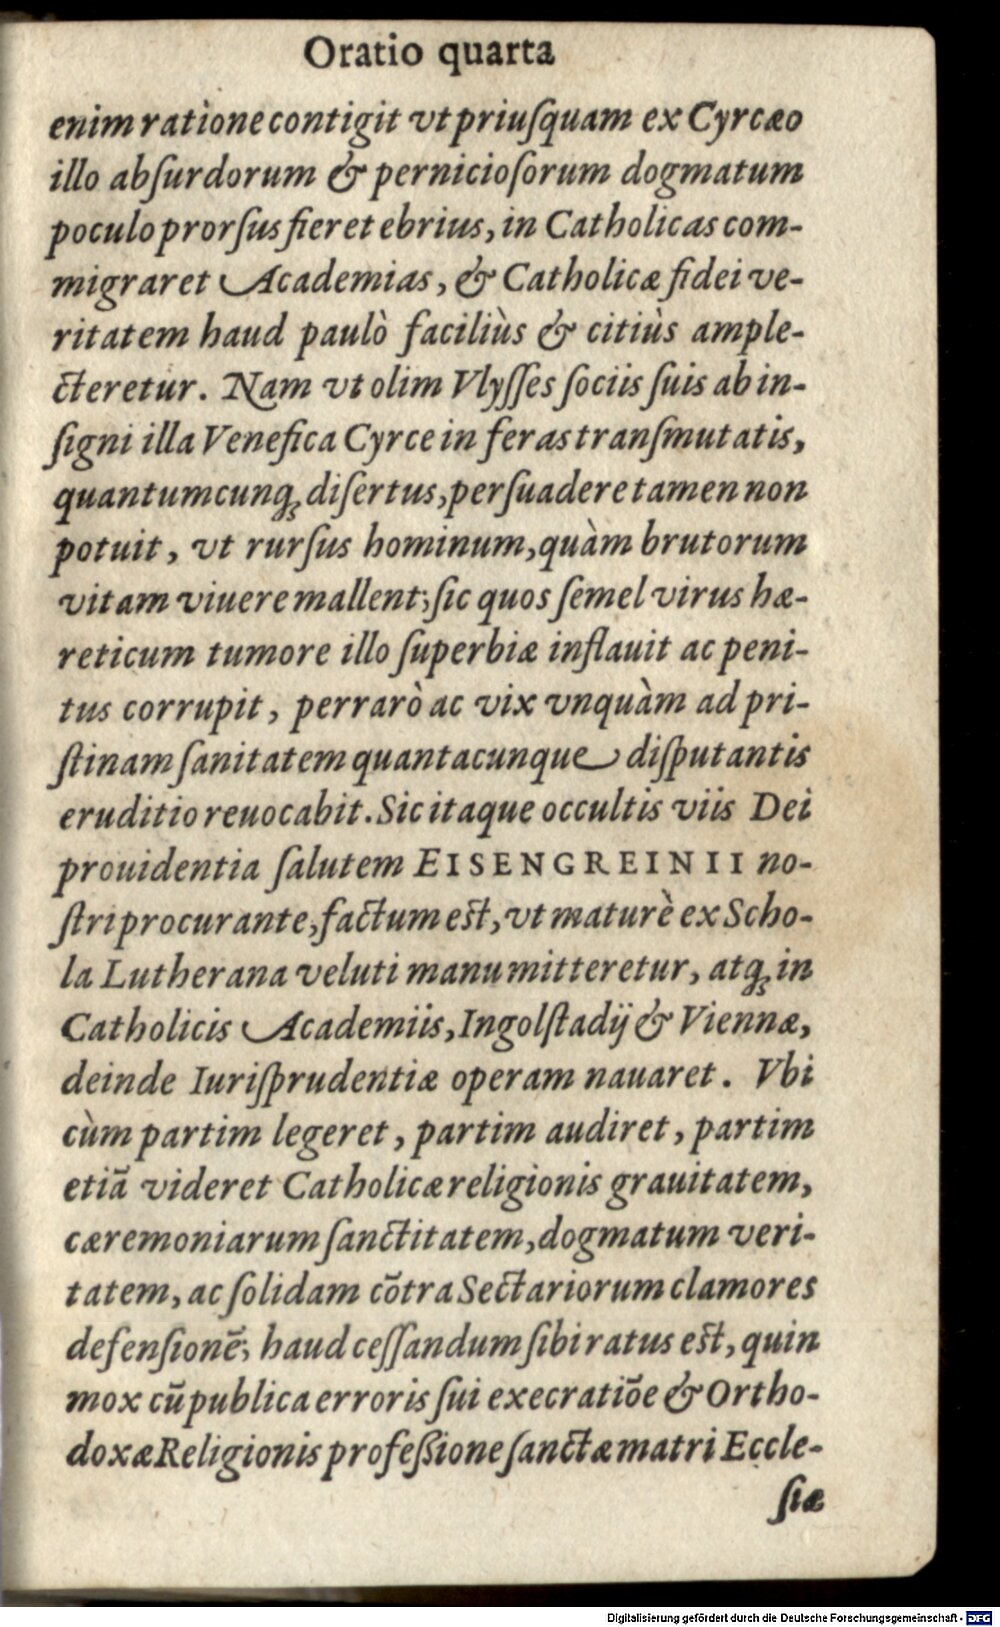 Oratio quarta
enim ratione contigit vt priuſquam ex Cyrcæo
illo abſurdorum & pernicioſorum dogmatum
poculo prorſus fieret ebrius, in Catholicas com-
migraret Academias, & Catholicæ fidei ve-
ritatem haud paulò faciliùs & citiùs ample-
cteretur. Nam vt olim Vlyſſes ſociis ſuis ab in-
ſigni illa Venefica Cyrce in feras tranſmutatis,
quantumcunq; diſertus, perſuadere tamen non
potuit, vt rurſus hominum, quàm brutorum
vitam viuere mallent; ſic quos ſemel virus hæ-
reticum tumore illo ſuperbiæ inflauit ac peni-
tus corrupit, perrarò ac vix vnquàm ad pri-
ſtinam ſanitatem quantacunque diſputantis
eruditio reuocabit. Sic itaque occultis viis Dei
prouidentia ſalutem EISENGREINII no-
ſtri procurante, factum est, vt maturè ex Scho-
la Lutherana veluti manu mitteretur, atq; in
Catholicis Academiis, Ingolſtadij & Viennæ,
deinde Iuriſprudentiæ operam nauaret. Vbi
cùm partim legeret, partim audiret, partim
etiā videret Catholicæ religionis grauitatem,
cæremoniarum ſanctitatem, dogmatum veri-
tatem, ac ſolidam cōtra Sectariorum clamores
defenſionē; haud ceſſandum ſibi ratus est, quin
mox cū publica erroris ſui execratiōe & Ortho-
doxæ Religionis profeßione ſanctæ matri Eccle-
ſiæ
Digitalisierung gefördert durch die Deutsche Forschungsgemeinschaft - DFG